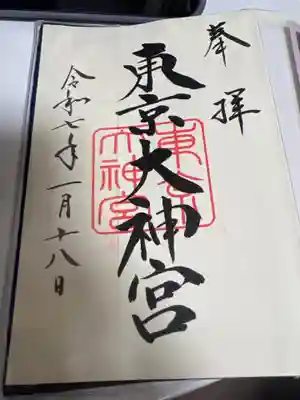 奉拝
東京大神宮
東京
大神宮
令和七年一月十八日